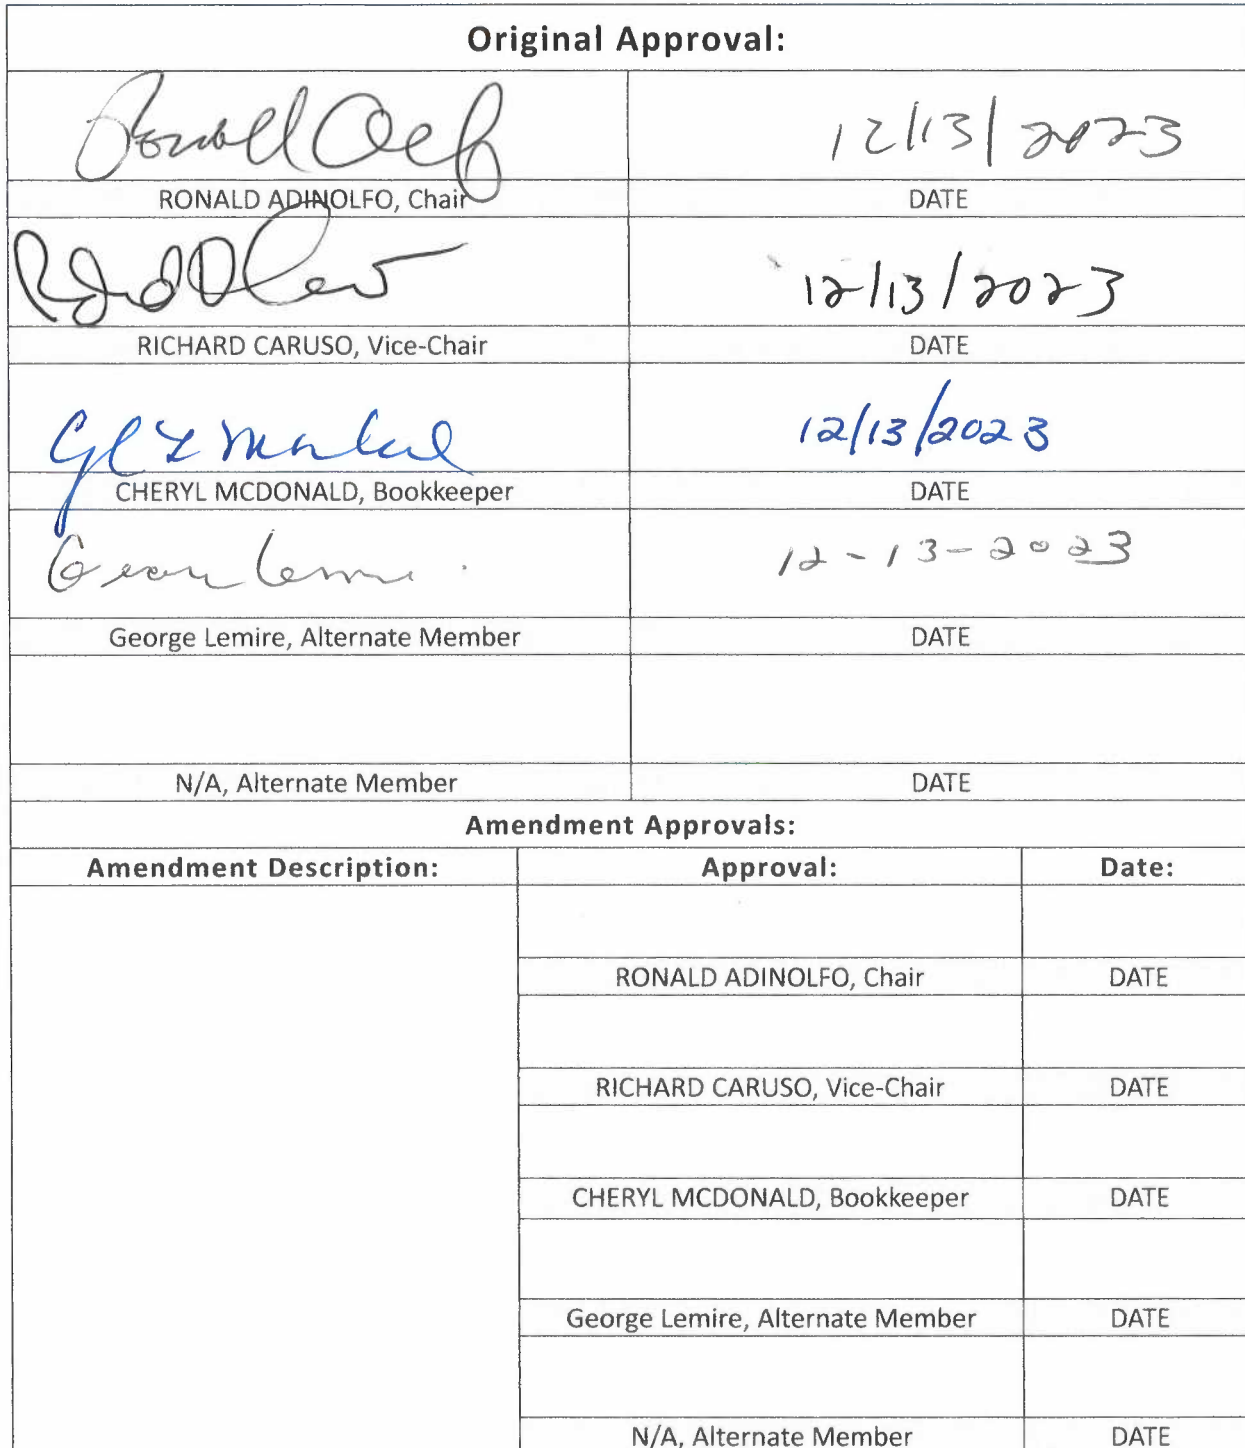 Original Approval:
12/13/2023
RONALD ADINOLFO, Chair DATE
12/13/2023
RICHARD CARUSO, Vice-Chair DATE
12/13/2023
CHERYL MCDONALD, Bookkeeper DATE
12-13-2023
George Lemire, Alternate Member DATE
N/A, Alternate Member DATE
Amendment Approvals:
Amendment Description: Approval: Date:
RONALD ADINOLFO, Chair DATE
RICHARD CARUSO, Vice-Chair DATE
CHERYL MCDONALD, Bookkeeper DATE
George Lemire, Alternate Member DATE
N/A, Alternate Member DATE